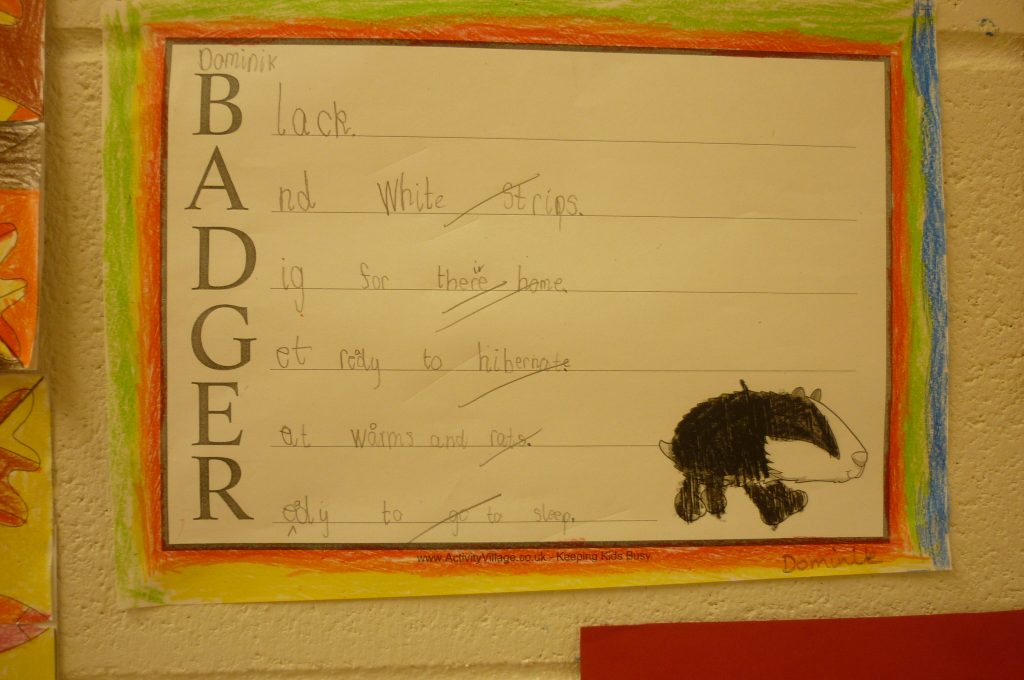 Dominik
Black.
And White Strips.
Dig for there home.
ir
Get redy to hibernate
Eat warms and rats.
Redy to go to sleep.
www.ActivityVillage.co.uk - Keeping Kids Busy
Dominik